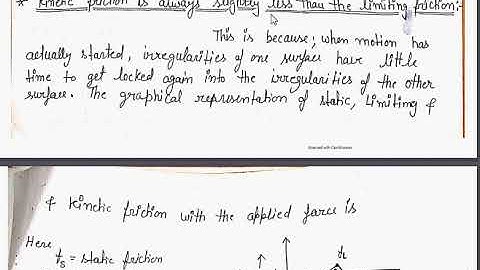 * Kinetic friction is always slightly less than the limiting friction:-
This is because; when motion has
actually started, irregularities of one surface have little
time to get locked again into the irregularities of the other
surface. The graphical representation of static, limiting &
Scanned with CamScanner
& Kinetic friction with the applied force is
Here
fs = static friction
fL